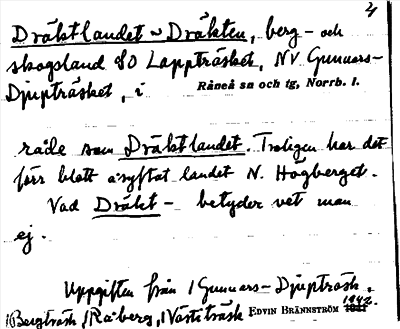 4
Dräktlandet ~ Dräkten, berg- och
skogsland SO Lappträsket, NV Gunnars-
Djupträsket, i Råneå sn och tg, Norrb. l.
råde som Dräktlandet. Troligen har det
förr blott åsyftat landet N. Högberget.
Vad Dräkt- betyder vet man
ej.
Uppgiften från / Gunnars-Djupträsk,
/Bergträsk, /Råberg, /Västiträsk EDVIN BRÄNNSTRÖM 1942.